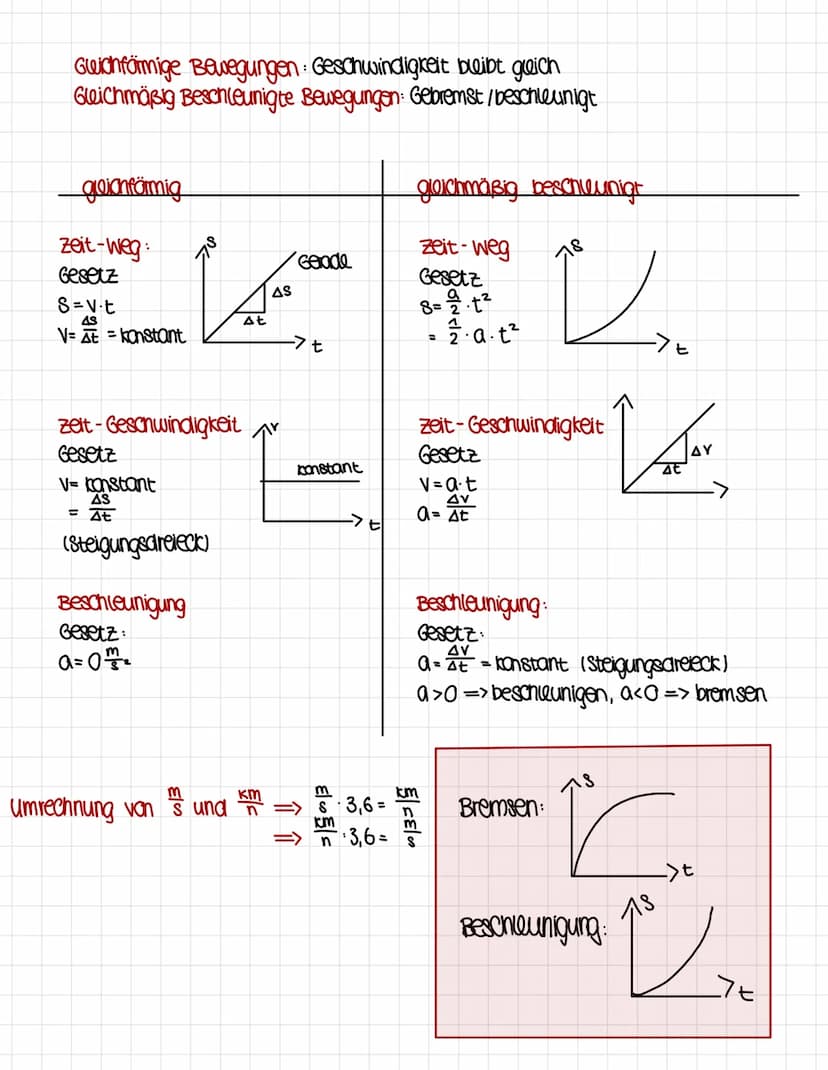 Gleichförmige Bewegungen: Geschwindigkeit bleibt gleich
Gleichmäßig Beschleunigte Bewegungen: Gebremst / beschleunigt
gleichförmig
Zeit-Weg:
Gesetz
s = v·t
v = Δs/Δt = konstant
s
Gerade
Δs
Δt
t
Zeit-Geschwindigkeit
Gesetz
v = konstant
= Δs/Δt
(Steigungsdreieck)
v
konstant
t
Beschleunigung
Gesetz:
a = 0 m/s²
gleichmäßig beschleunigt
Zeit-Weg
Gesetz
s = a/2 · t²
= 1/2 · a · t²
s
t
Zeit-Geschwindigkeit
Gesetz
v = a·t
a = Δv/Δt
Δv
Δt
Beschleunigung:
Gesetz:
a = Δv/Δt = konstant (Steigungsdreieck)
a>0 => beschleunigen, a<0 => bremsen
Umrechnung von m/s und km/h => m/s · 3,6 = km/h
=> km/h : 3,6 = m/s
Bremsen:
s
t
Beschleunigung:
s
t